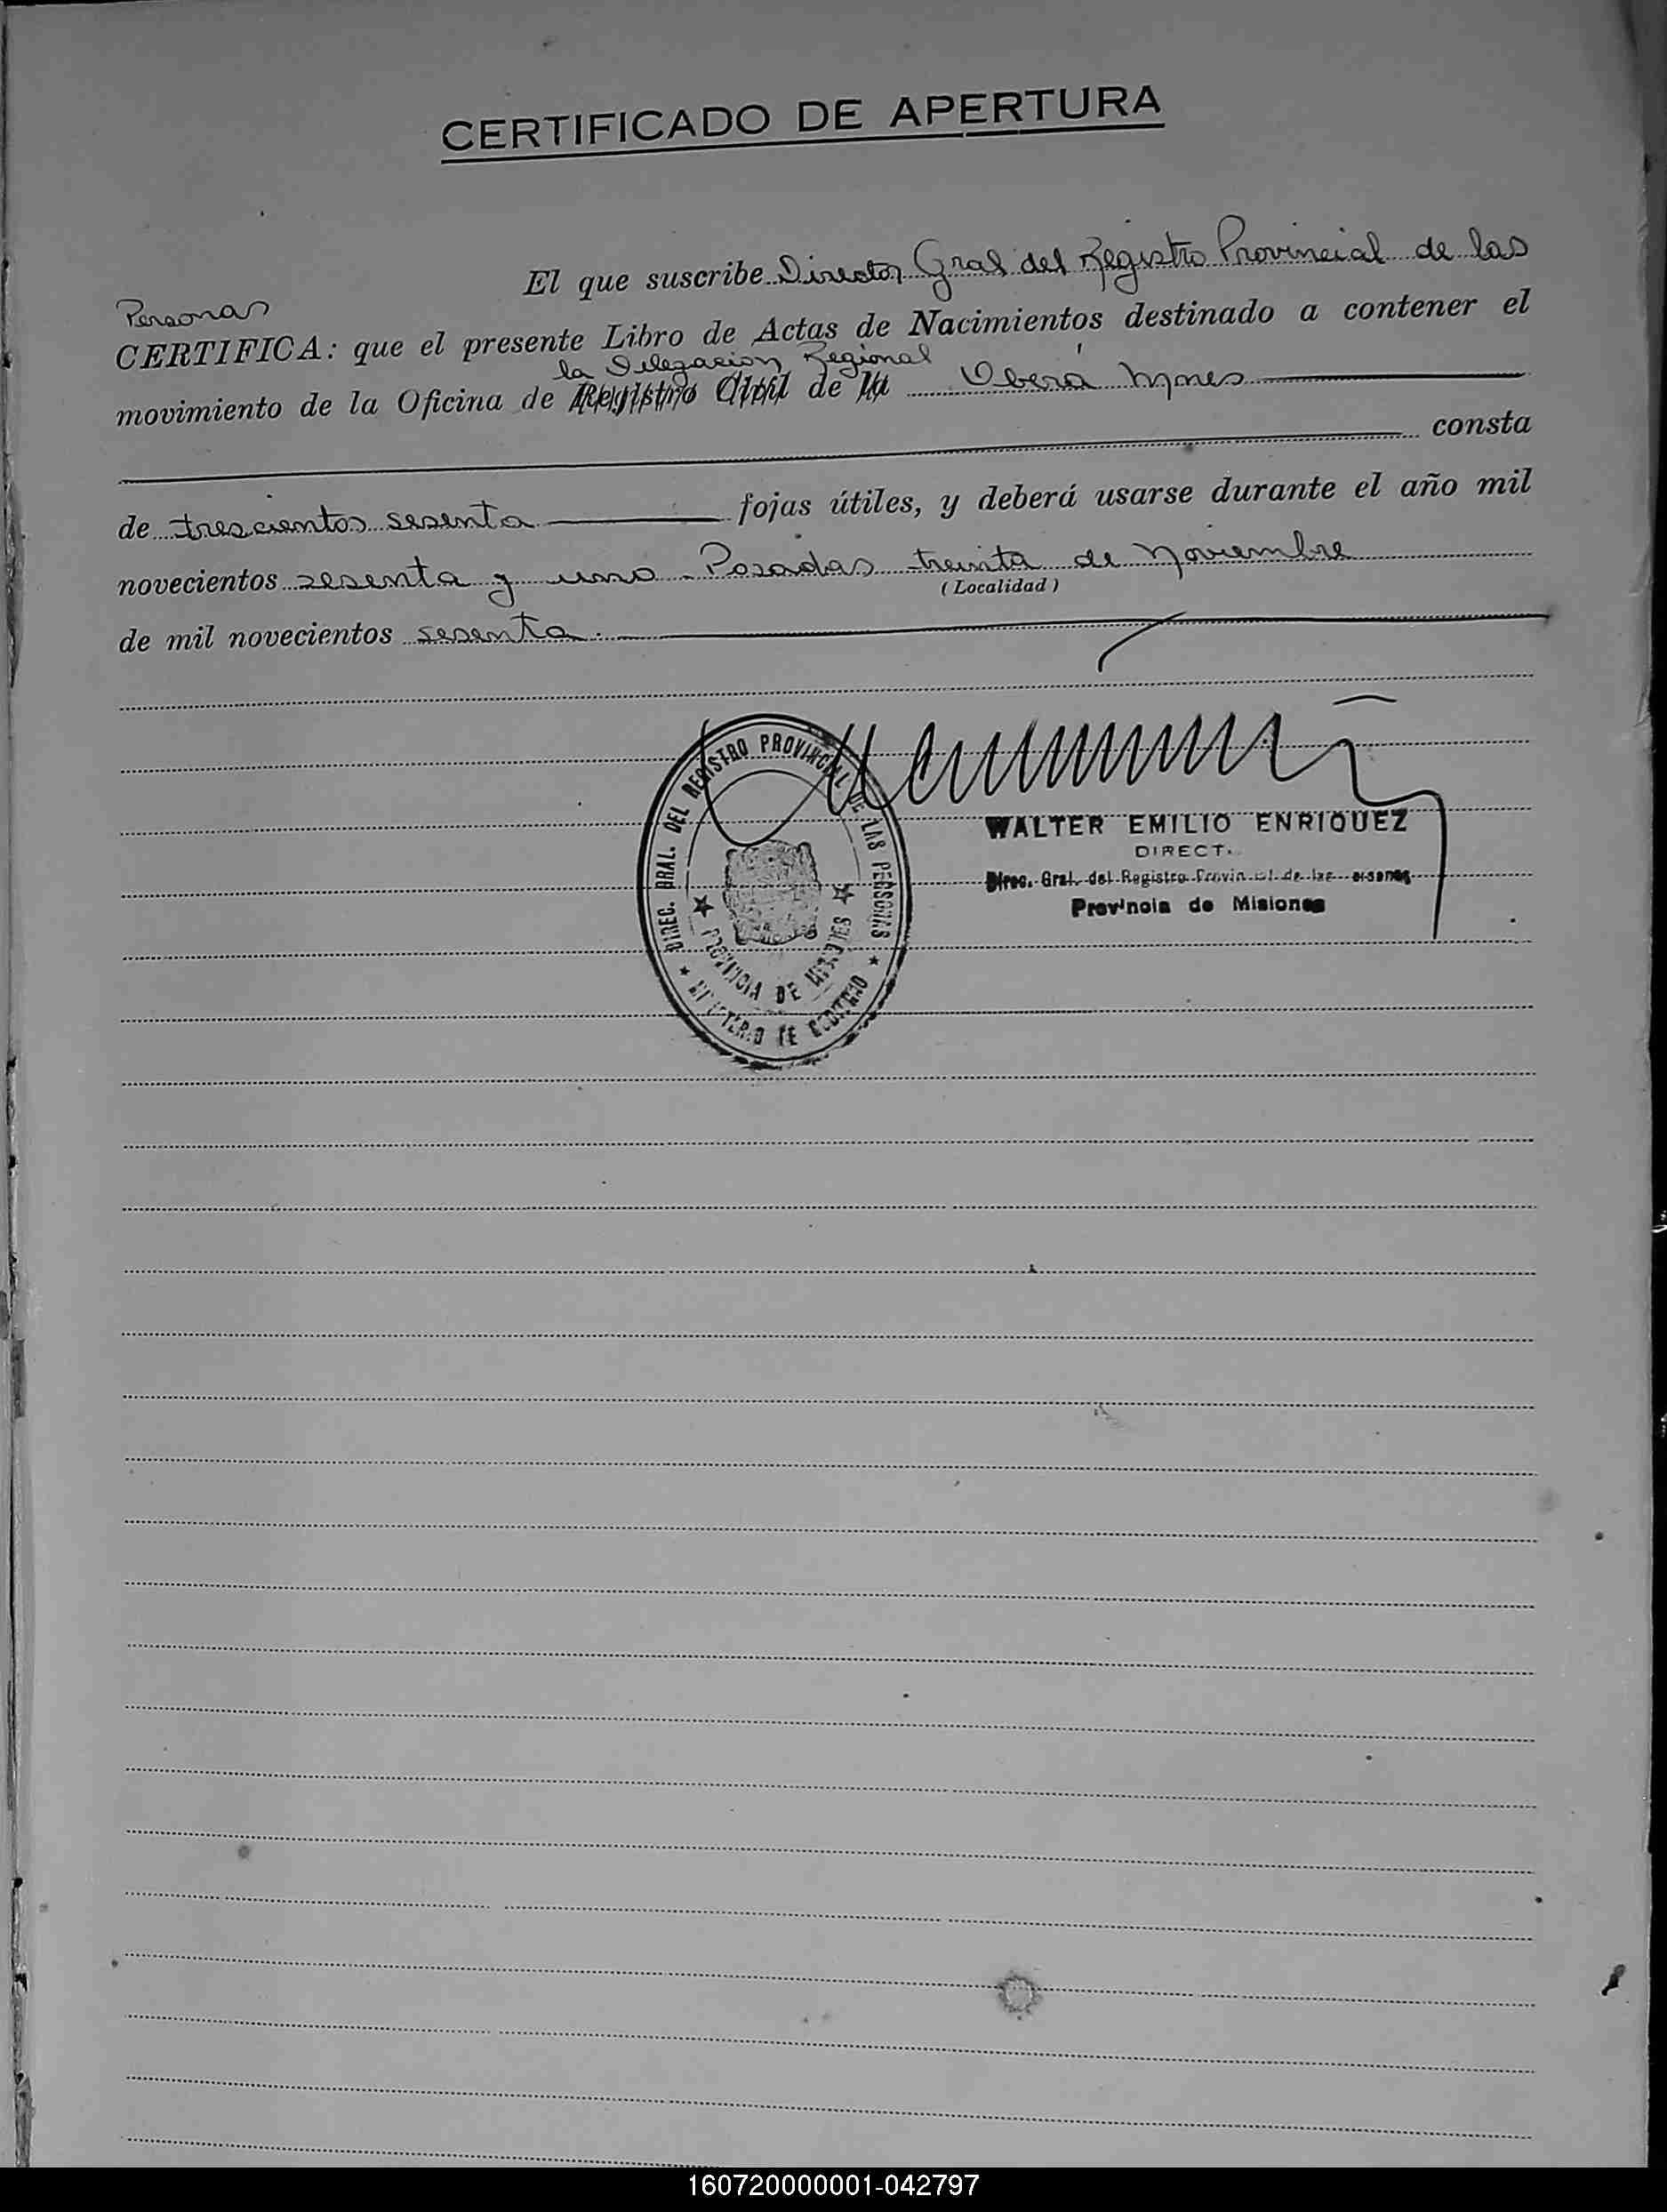 CERTIFICADO DE APERTURA
El que suscribe Director Gral del Registro Provincial de las
Personas
CERTIFICA: que el presente Libro de Actas de Nacimientos destinado a contener el
la Delegacion Regional
movimiento de la Oficina de Registro Civil de la Oberá Mnes
consta
de trescientos sesenta fojas útiles, y deberá usarse durante el año mil
novecientos sesenta y uno - Posadas treinta de Noviembre
(Localidad)
de mil novecientos sesenta.
DIREC. GRAL. DEL REGISTRO PROVINCIAL DE LAS PERSONAS
PROVINCIA DE MISIONES
MINISTERIO DE GOBIERNO
WALTER EMILIO ENRIQUEZ
DIRECT.
Direc. Gral. del Registro Provin de las
Provincia de Misiones
160720000001-042797